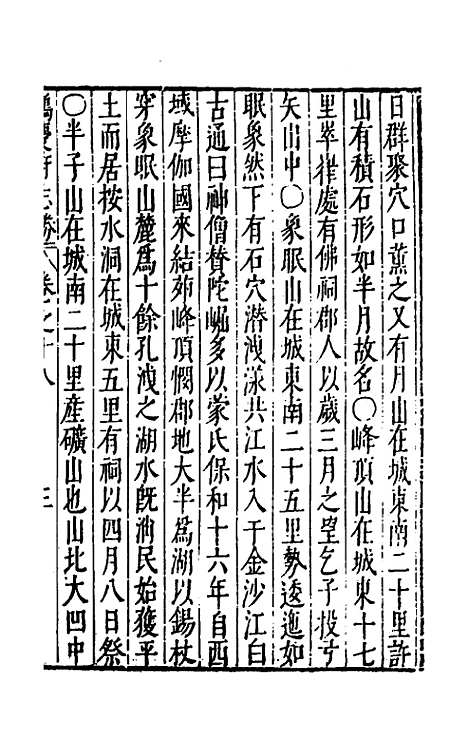 日群聚穴口薰之又有月山在城東南二十里許
山有積石形如半月故名〇峰頂山在城東十七
里翠巖處有佛祠郡人以歲三月之望乞子投
矢山中〇象眠山在城東南二十五里勢逶迤如
眠象然下有石穴潜洩漾共江水入于金沙江白
古通曰神僧贊陀崛多以蒙氏保和十六年自西
域摩伽國來結茆峰頂憫郡地大半爲湖以錫杖
穿象眠山麓爲十餘孔洩之湖水旣涸民始獲平
土而居按水洞在城東五里有祠以四月八日祭
〇半子山在城南二十里産礦山也山北大凹中
鶴慶府志勝 卷之十八 三